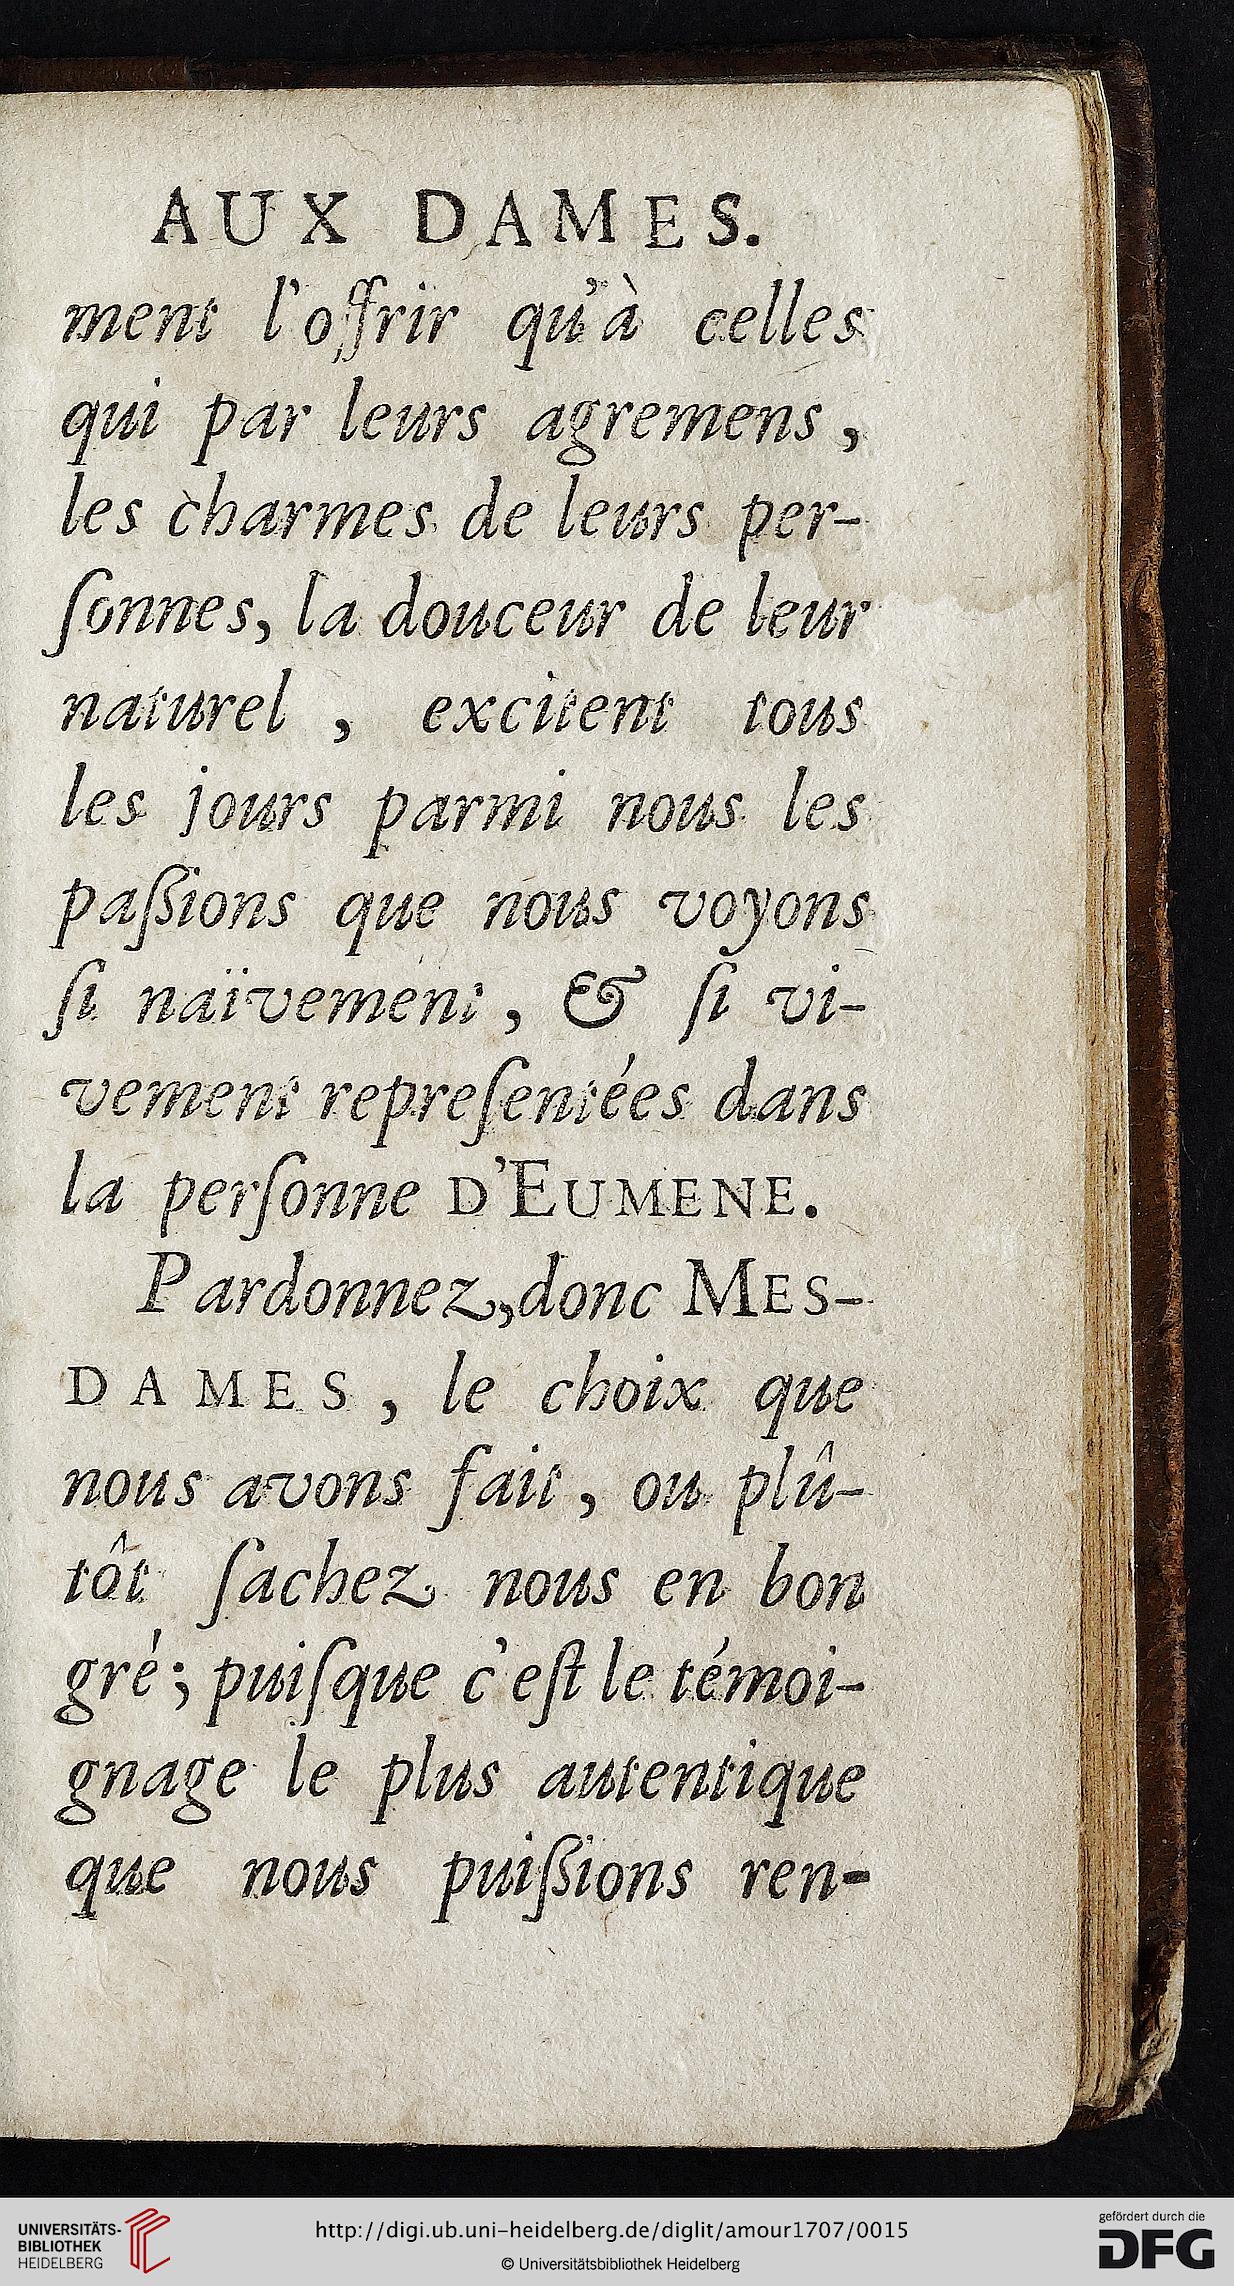 AUX DAMES.
ment l'offrir qu'à celles
qui par leurs agremens,
les charmes de leurs per-
ſonnes, la douceur de leur
naturel, excitent tous
les jours parmi nous les
paßions que nous voyons
ſi naïvement, & ſi vi-
vement repreſentées dans
la perſonne D'EUMENE.
Pardonnez, donc MES-
DAMES, le choix que
nous avons fait, ou plû-
tôt ſachez nous en bon
gré; puiſque c'eſt le témoi-
gnage le plus autentique
que nous puißions ren-
UNIVERSITÄTS-
BIBLIOTHEK
HEIDELBERG
http://digi.ub.uni-heidelberg.de/diglit/amour1707/0015
© Universitätsbibliothek Heidelberg
gefördert durch die
DFG